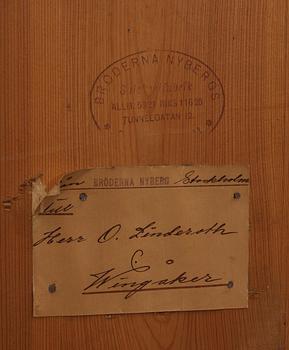 BRÖDERNA NYBERGS
Möbelfabrik
ALLM. 5921 RIKS 11626
TUNNELGATAN 12.
BRÖDERNA NYBERG Stockholm
till
Herr O. Linderoth
Wingåker